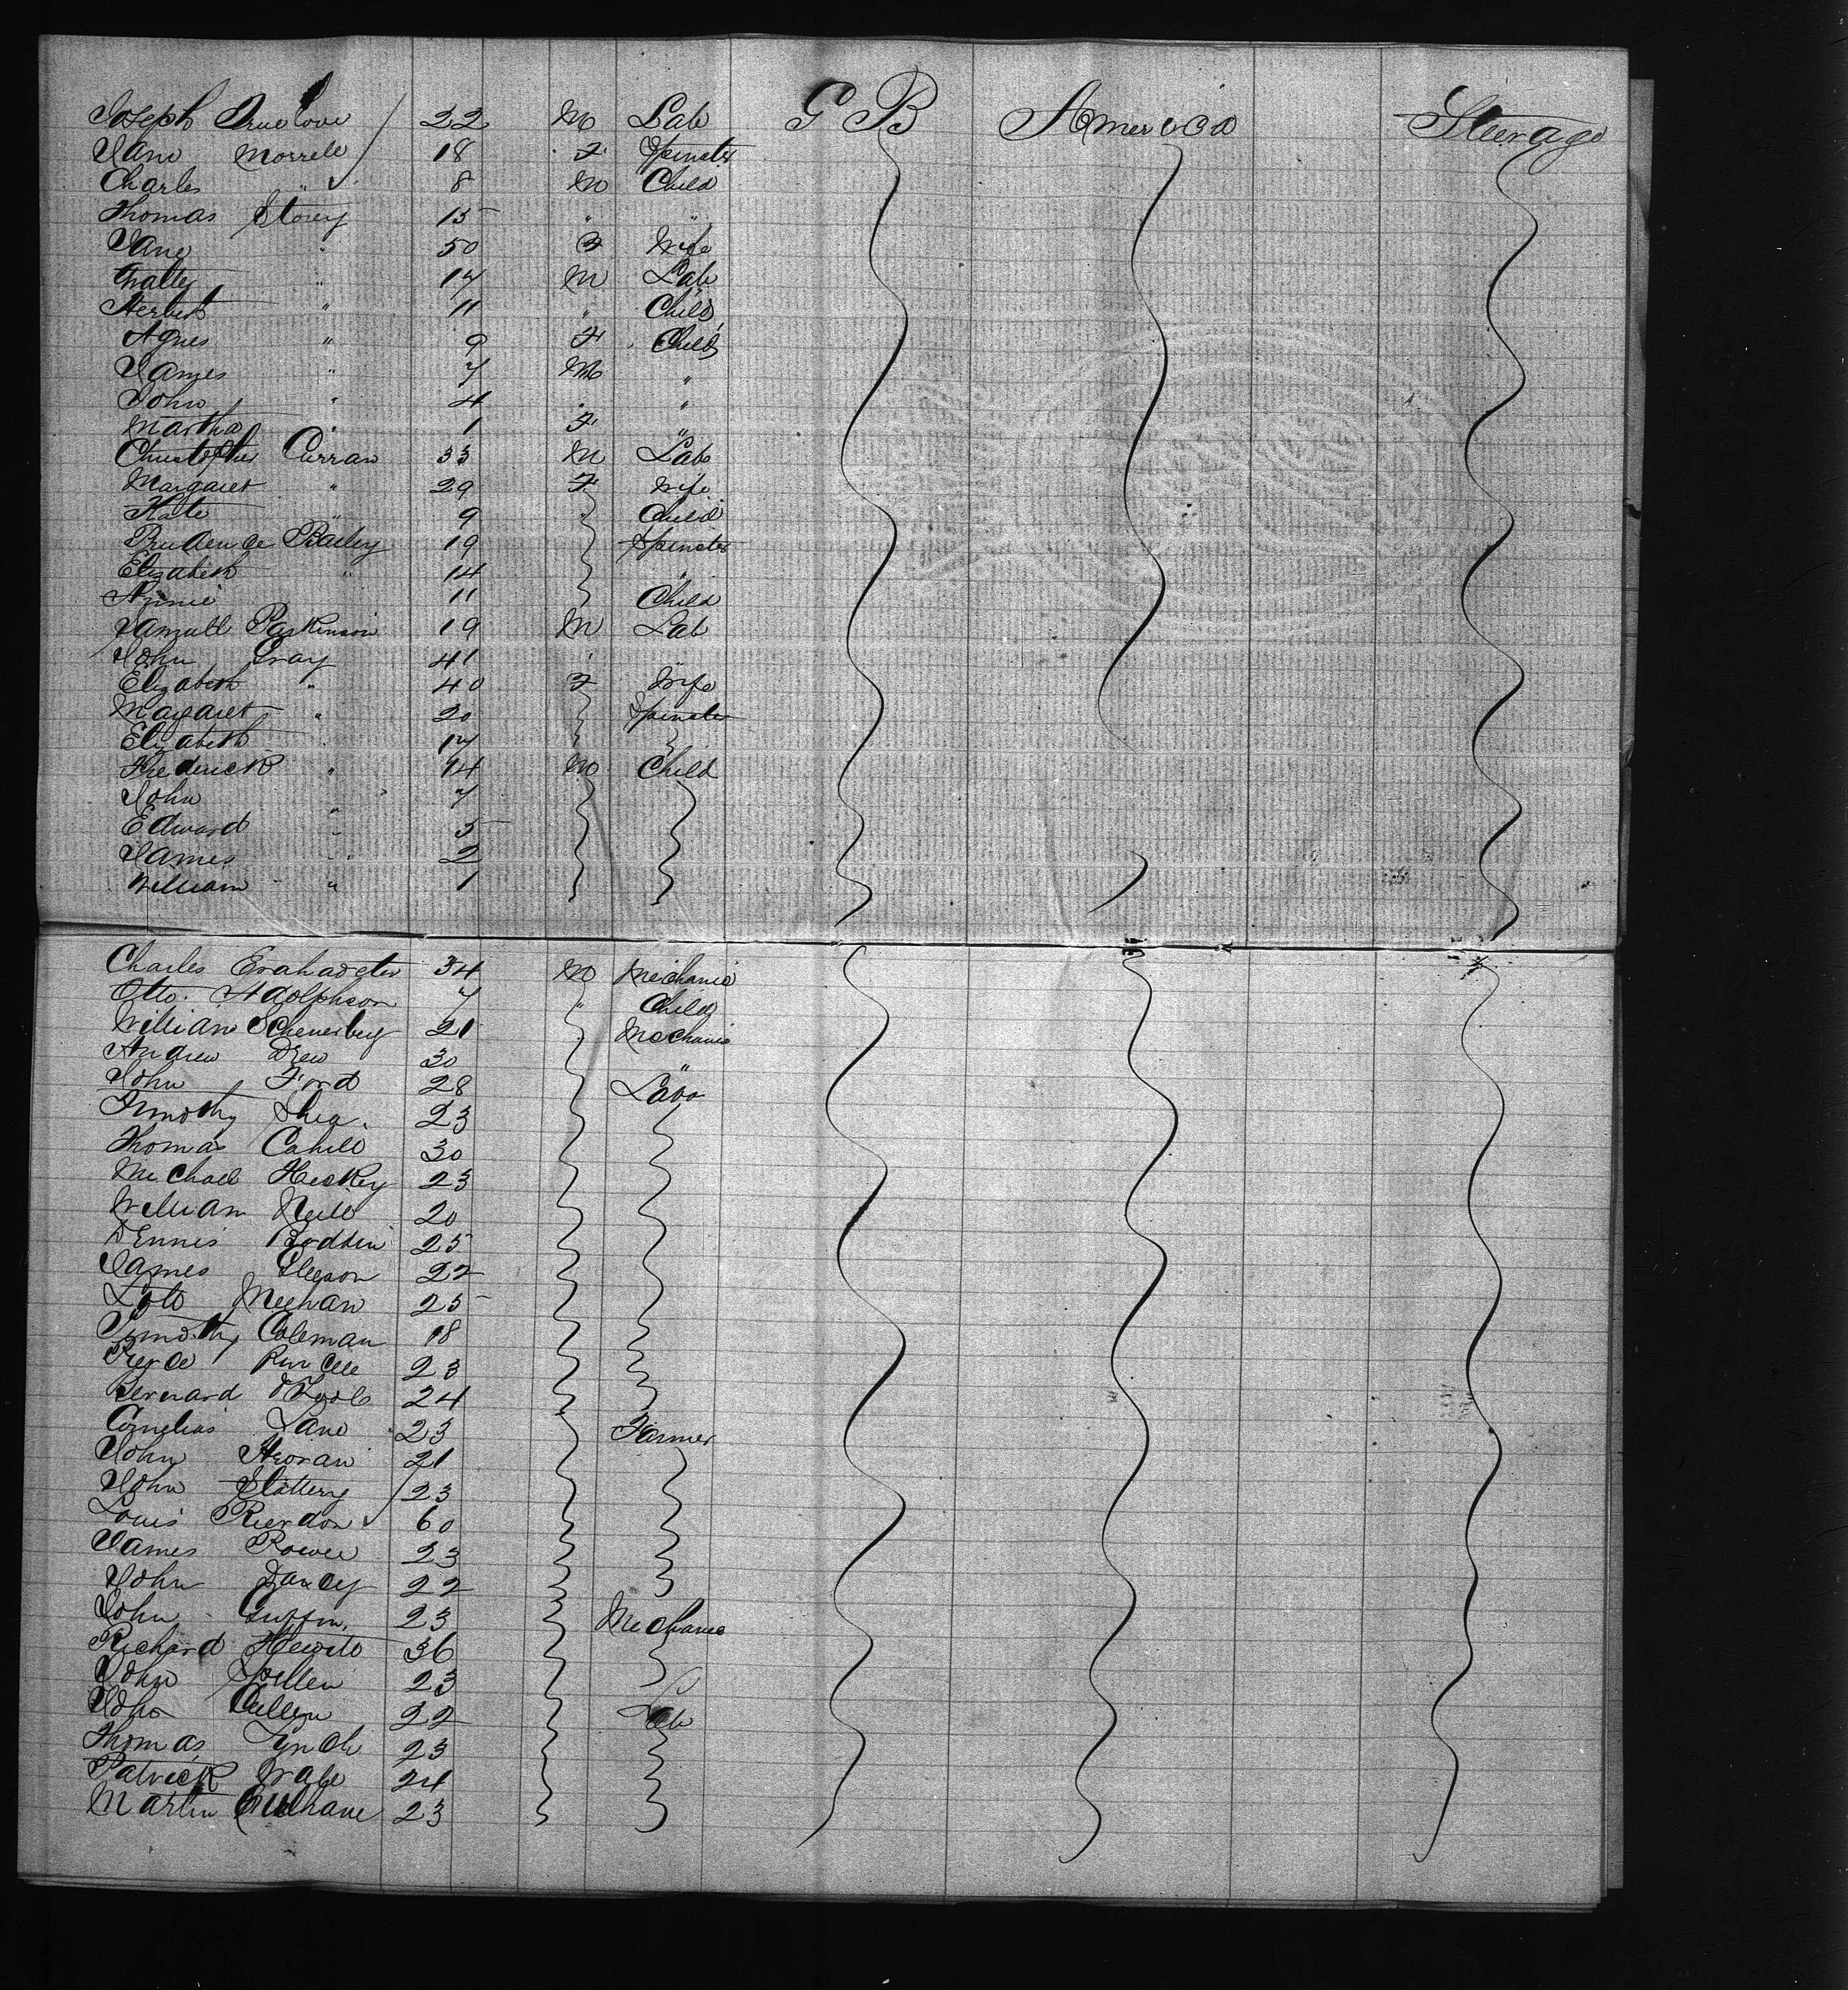 Joseph Truelove 22 M Lab G B America Steerage
Jane Morrell 18 F Spinster
Charles " 8 M Child
Thomas Storey 15 " "
Jane " 50 F Wife
" 17 M Lab
Herbert " 11 " Child
Agnes " 9 F Child
James " 7 M "
John " 4 " "
Martha " 1 F "
Christopher Curran 33 M Labo
Margaret " 29 F Wife
Kate " 9 " Child
Prudence Bailey 19 Spinster
Elizabeth " 14 "
Annie 11 Child
Parkinson 19 M Lab
John Gray 41 " "
Elizabeth " 40 F Wife
Margaret " 20 Spinster
Elizabeth " 17
Frederick " 14 M Child
John " 7
Edward " 5
James " 2
William " 1
Charles 34 M Mechanic
Otto Adolphson 7 " Child
William 21 Mechanic
Andrew Drew 30 "
John Ford 28 Labo
Timothy Shea 23
Thomas Cahill 30
Michael Hickey 23
William Neill 20
Dennis 25
James Gleeson 22
Meehan 25
Timothy Coleman 18
Pierce Purcell 23
Bernard 24
Cornelius Lane 23 Farmer
John Horan 21
John Slattery 23
Louis Riordon 60
James Power 23
John Darcy 22
John Griffin 23 Mechanic
Richard Hewitt 36
John 23
John Cullen 22 Lab
Thomas Lynch 23
Patrick 24
Martin Culhane 23